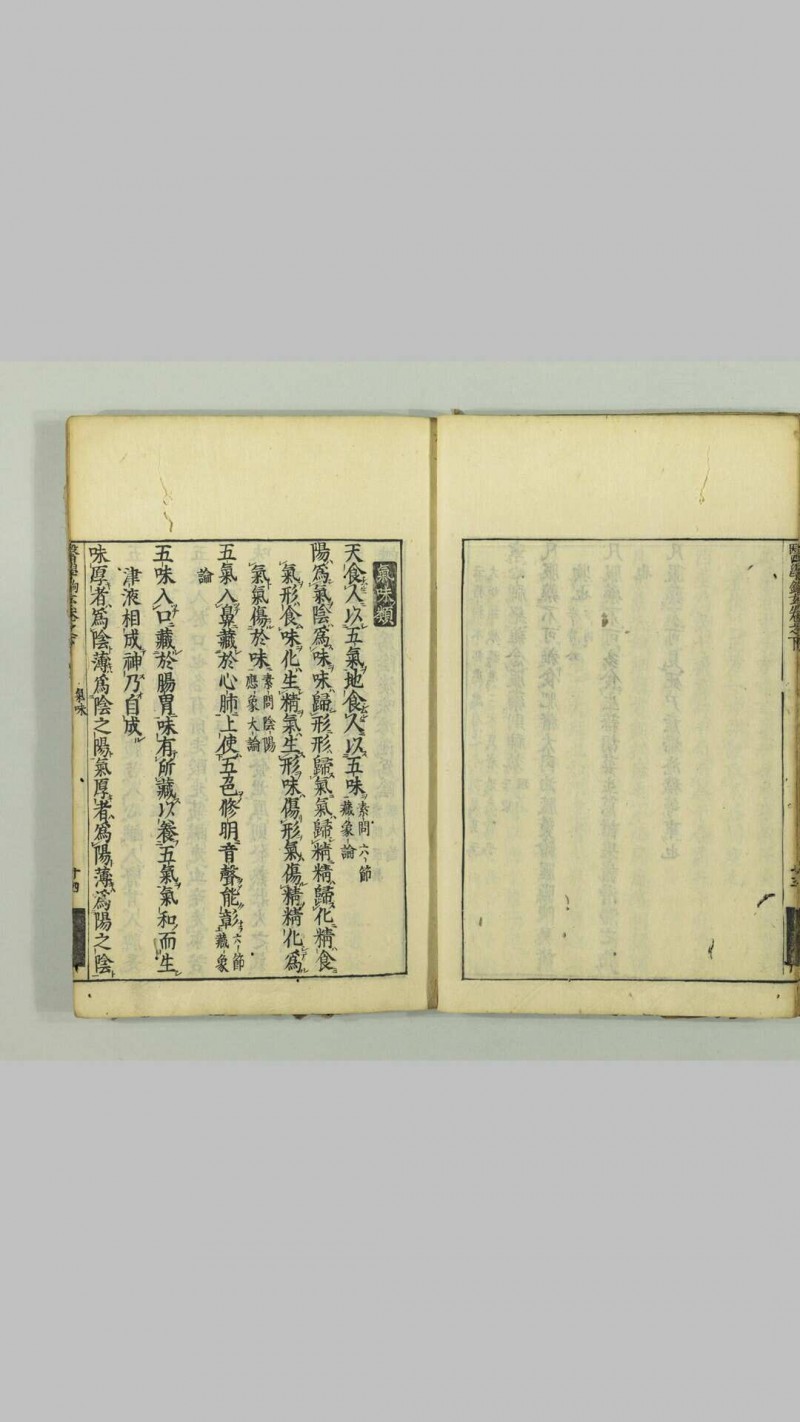 氣味類
天食人以五氣地食人以五味素問六節藏象論
陽爲氣陰爲味味歸形形歸氣氣歸精精歸化精食
氣形食味化生精氣生形味傷形氣傷精精化爲
氣氣傷於味素問陰陽應象大論
五氣入鼻藏於心肺上使五色修明音聲能彰六節藏象
論
五味入口藏於腸胃味有所藏以養五氣氣和而生
津液相成神乃自成
味厚者爲陰薄爲陰之陽氣厚者爲陽薄爲陽之陰
氣味
十四